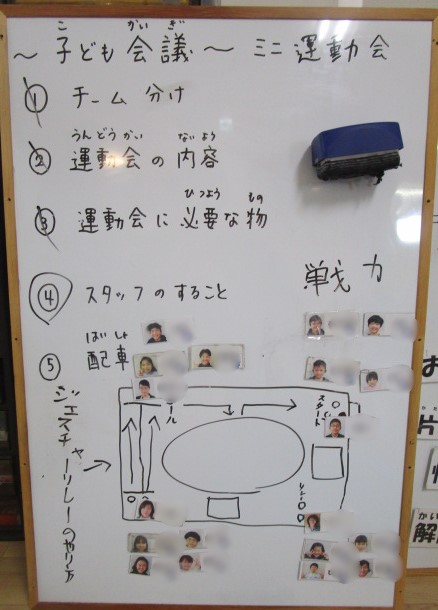 こ かいぎ
～子ども会議～ ミニ運動会
① チーム分け
うんどうかい ないよう
② 運動会の内容
ひつよう もの
③ 運動会に必要な物
④ スタッフのすること
戦力
ばしょ
⑤ 配車
ジェスチャーリレーのやり方
ール
スタート
お
片
かい
解